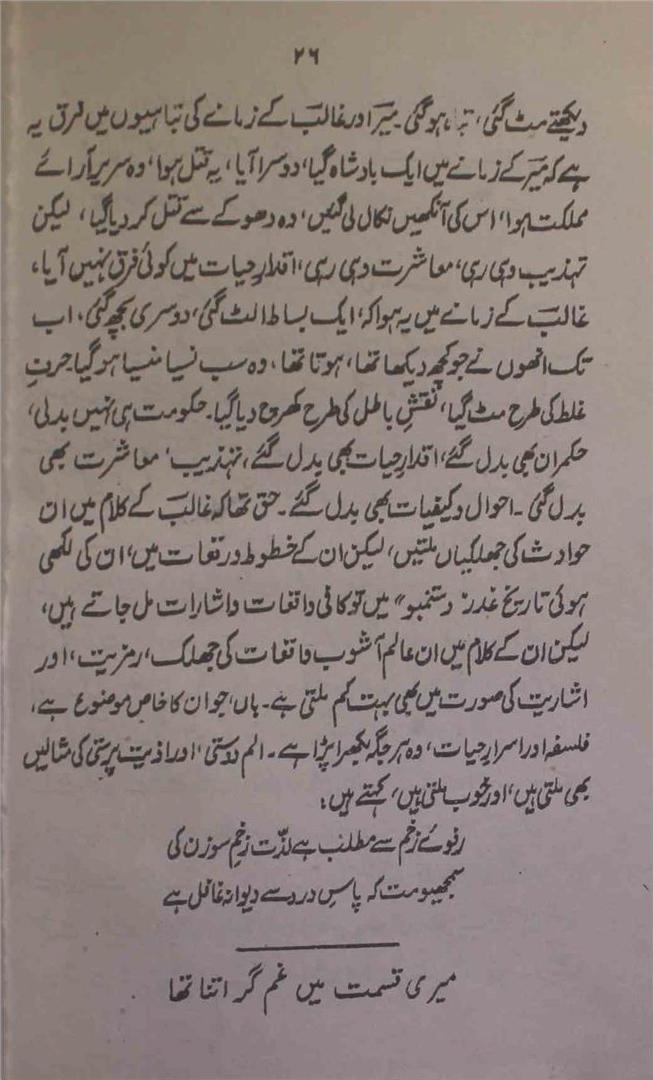 ۲۶
دیکھتے مٹ گئی، تباہ ہو گئی۔ میرؔ اور غالبؔ کے زمانے کی تباہیوں میں فرق یہ
ہے کہ میرؔ کے زمانے میں ایک بادشاہ گیا، دوسرا آیا، یہ قتل ہوا، وہ سریر آرائے
مملکت ہوا، اس کی آنکھیں نکال لی گئیں، وہ دھوکے سے قتل کر دیا گیا، لیکن
تہذیب وہی رہی، معاشرت وہی رہی، اقدارِ حیات میں کوئی فرق نہیں آیا،
غالبؔ کے زمانے میں یہ ہوا کہ، ایک بساط الٹ گئی، دوسری بچھ گئی، اب
تک انھوں نے جو کچھ دیکھا تھا، ہوتا تھا، وہ سب نسیاً منسیا ہو گیا حرفِ
غلط کی طرح مٹ گیا، نقشِ باطل کی طرح کھرچ دیا گیا۔ حکومت ہی نہیں بدلی،
حکمران بھی بدل گئے، اقدارِ حیات بھی بدل گئے، تہذیب، معاشرت بھی
بدل گئی۔ احوال و کیفیات بھی بدل گئے۔ حق تھا کہ غالبؔ کے کلام میں ان
حوادث کی جھلکیاں ملتیں، لیکن ان کے خطوط و رقعات میں، ان کی لکھی
ہوئی تاریخ غدر "دستنبو" میں تو کافی واقعات و اشارات مل جاتے ہیں،
لیکن ان کے کلام میں ان عالم آشوب واقعات کی جھلک، رمزیت، اور
اشاریت کی صورت میں بھی بہت کم ملتی ہے۔ ہاں، جو ان کا خاص موضوع ہے،
فلسفہ اور اسرارِ حیات، وہ ہر جگہ بکھرا پڑا ہے۔ الم دوستی، اور اذیت پرستی کی مثالیں
بھی ملتی ہیں، اور خوب ملتی ہیں، کہتے ہیں:
رفوئے زخم سے مطلب ہے لذّت زخمِ سوزن کی
سمجھیو مت کہ پاسِ درد سے دیوانہ غافل ہے
میری قسمت میں غم گر اتنا تھا